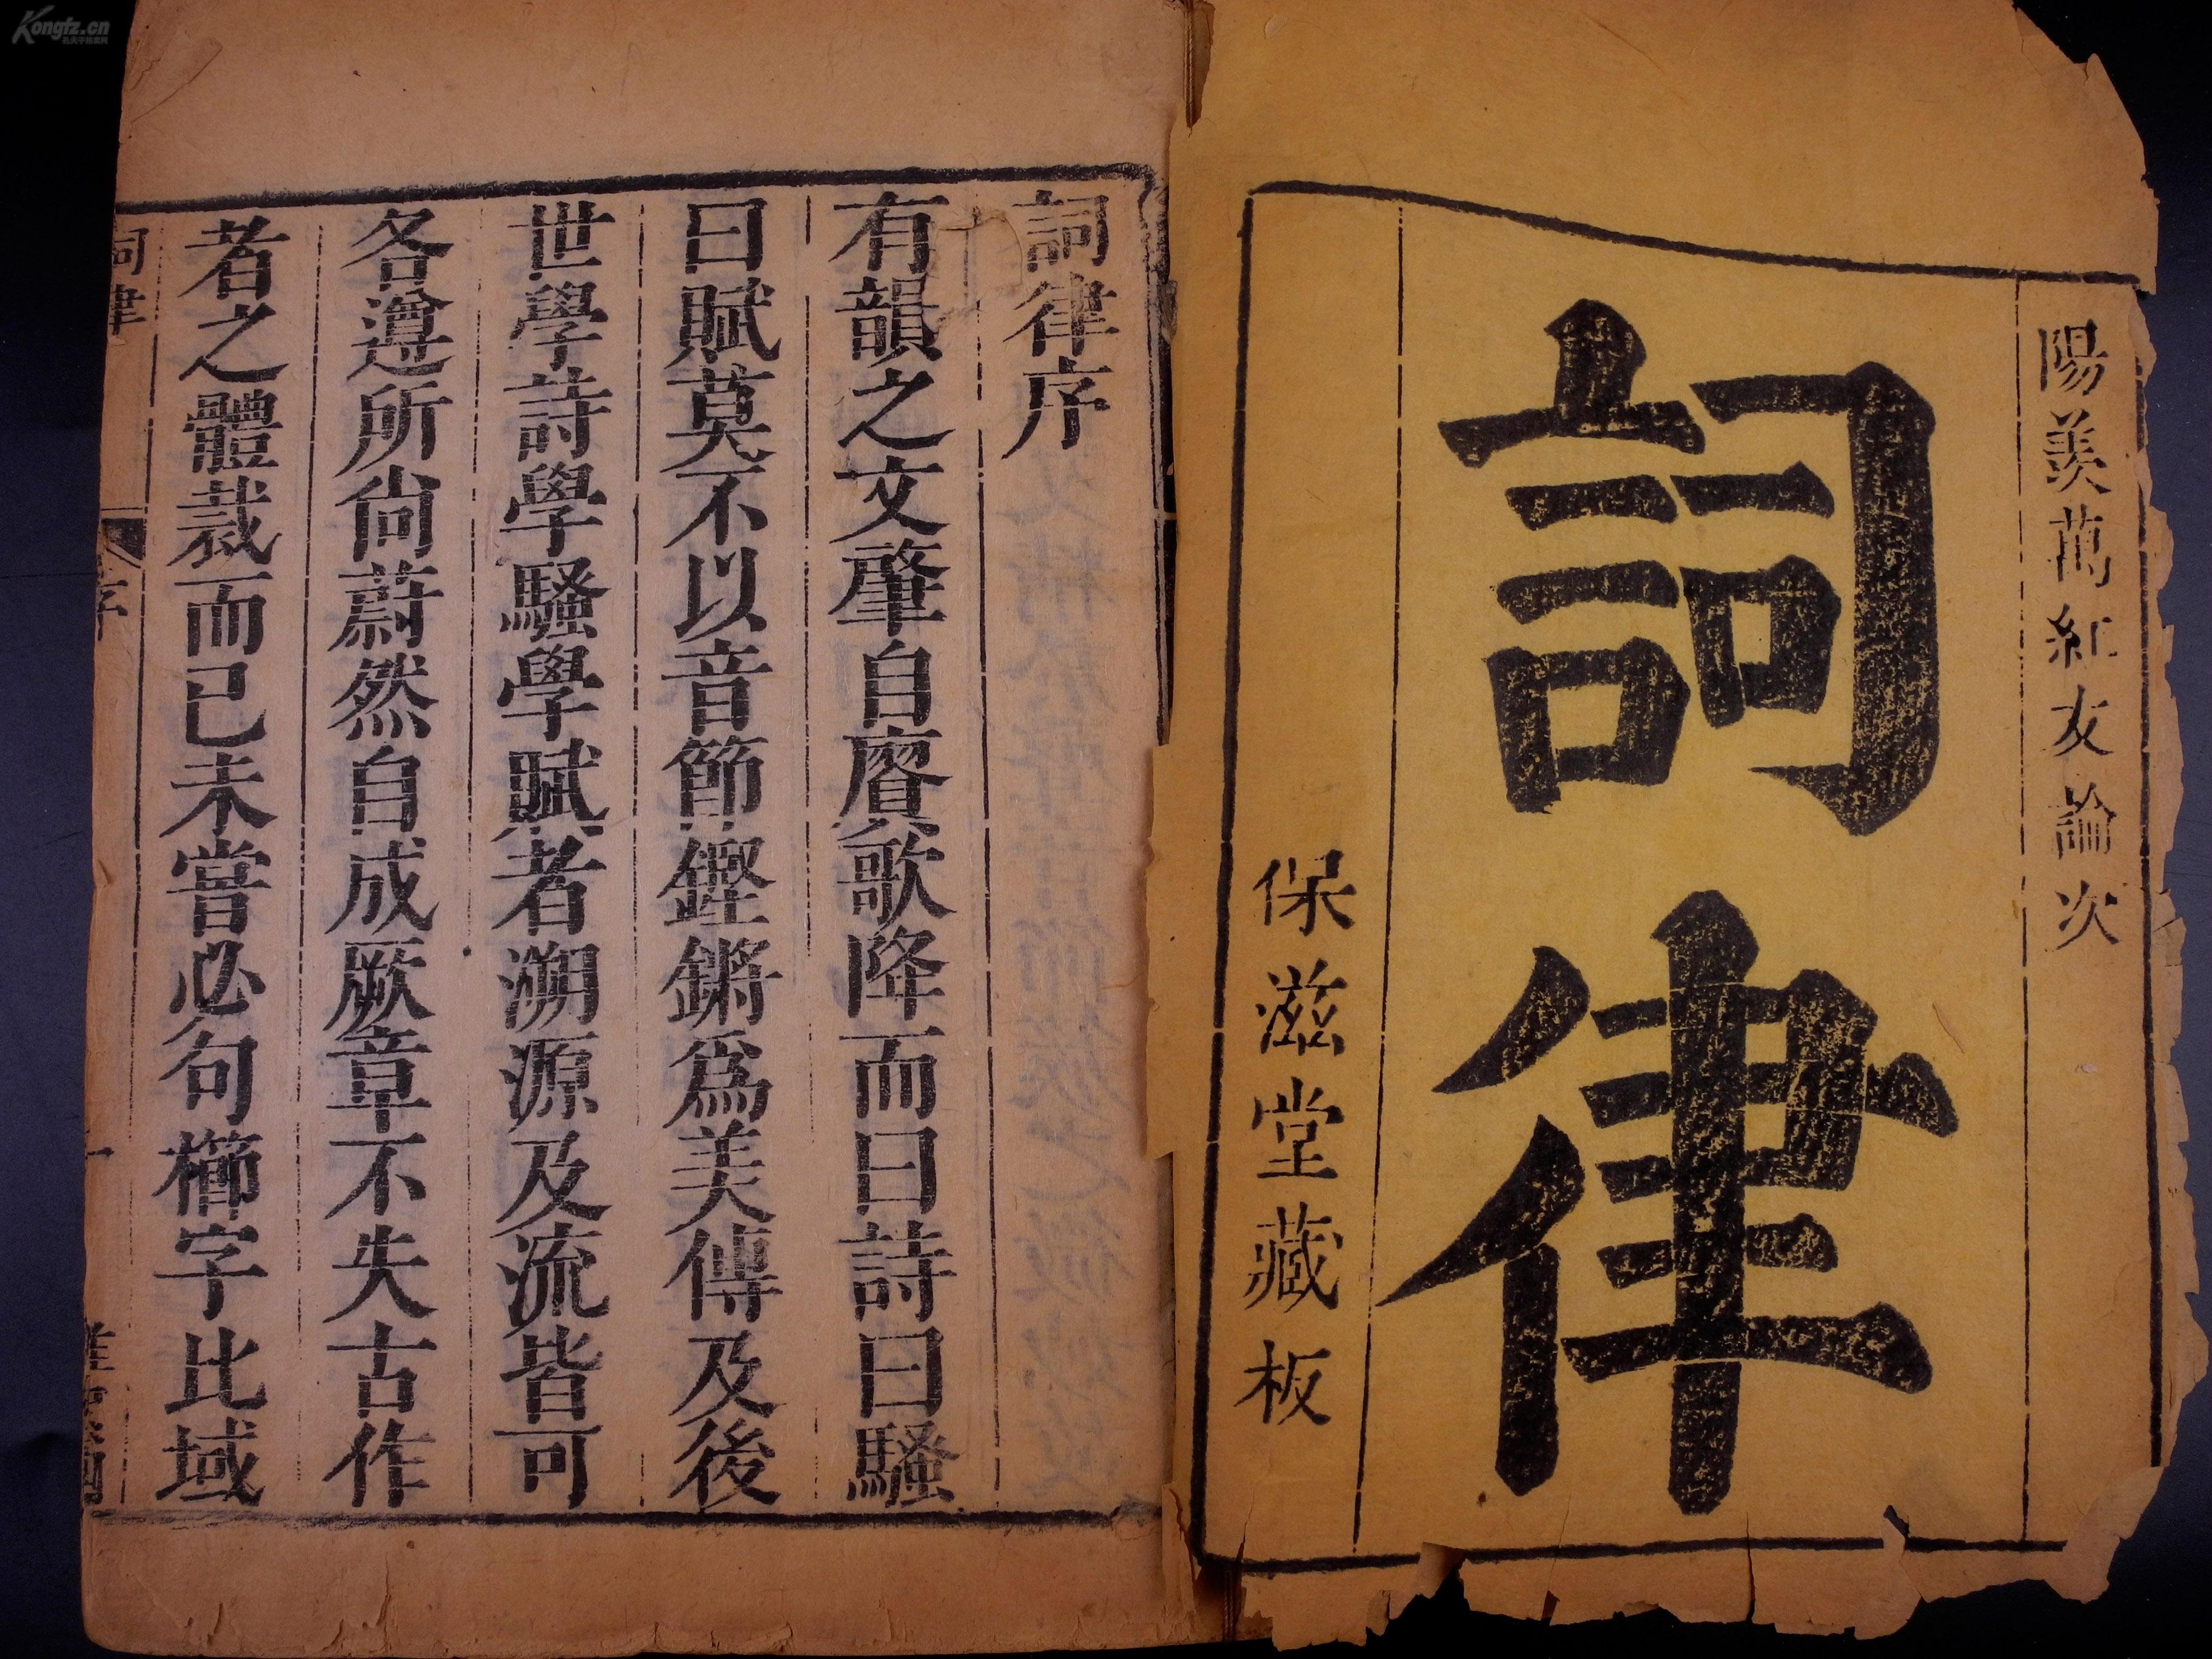 Kongfz.cn
陽羨萬紅友論次
詞律
保滋堂藏板
詞律序
有韻之文肇自賡歌降而曰詩曰騷
曰賦莫不以音節鏗鏘爲美傳及後
世學詩學騷學賦者溯源及流皆可
各遵所尙蔚然自成厥章不失古作
者之體裁而已未嘗必句櫛字比域
詞律
序
一